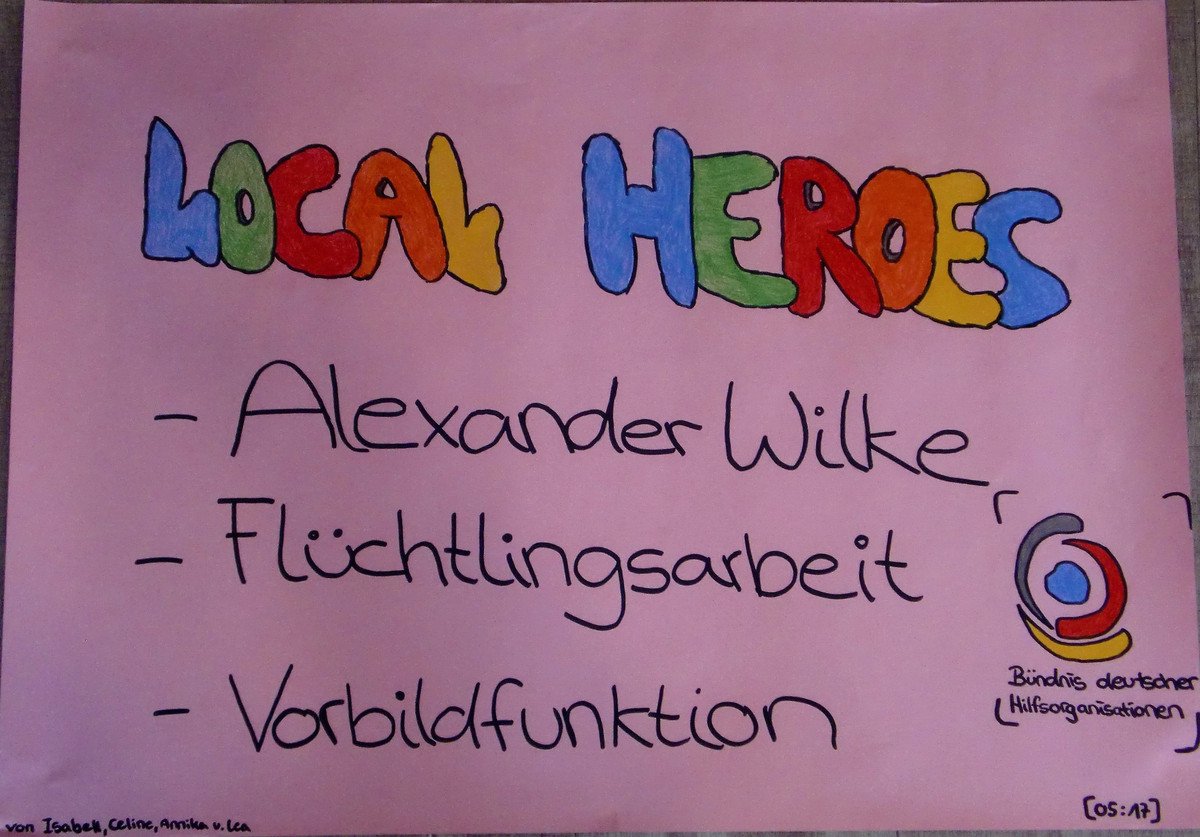 LOCAL HEROES
- Alexander Wilke
- Flüchtlingsarbeit
- Vorbildfunktion
Bündnis deutscher
Hilfsorganisationen
von Isabell, Celine, Annika u. Lea
[05:17]